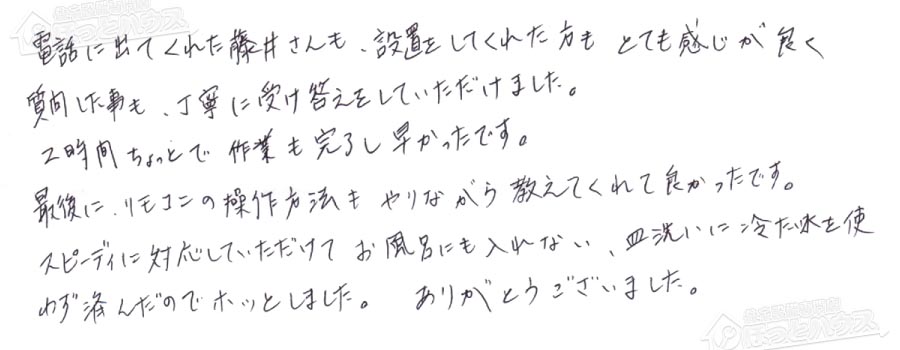 電話に出てくれた藤井さんも、設置をしてくれた方も とても感じが良く
質問した事も、丁寧に受け答えをしていただけました。
2時間ちょっとで 作業も完了し早かったです。
最後に、リモコンの操作方法も やりながら教えてくれて良かったです。
スピーディに対応していただけて お風呂にも入れない、皿洗いに冷た水を使
わず済んだのでホッとしました。 ありがとうございました。
ほっとハウス